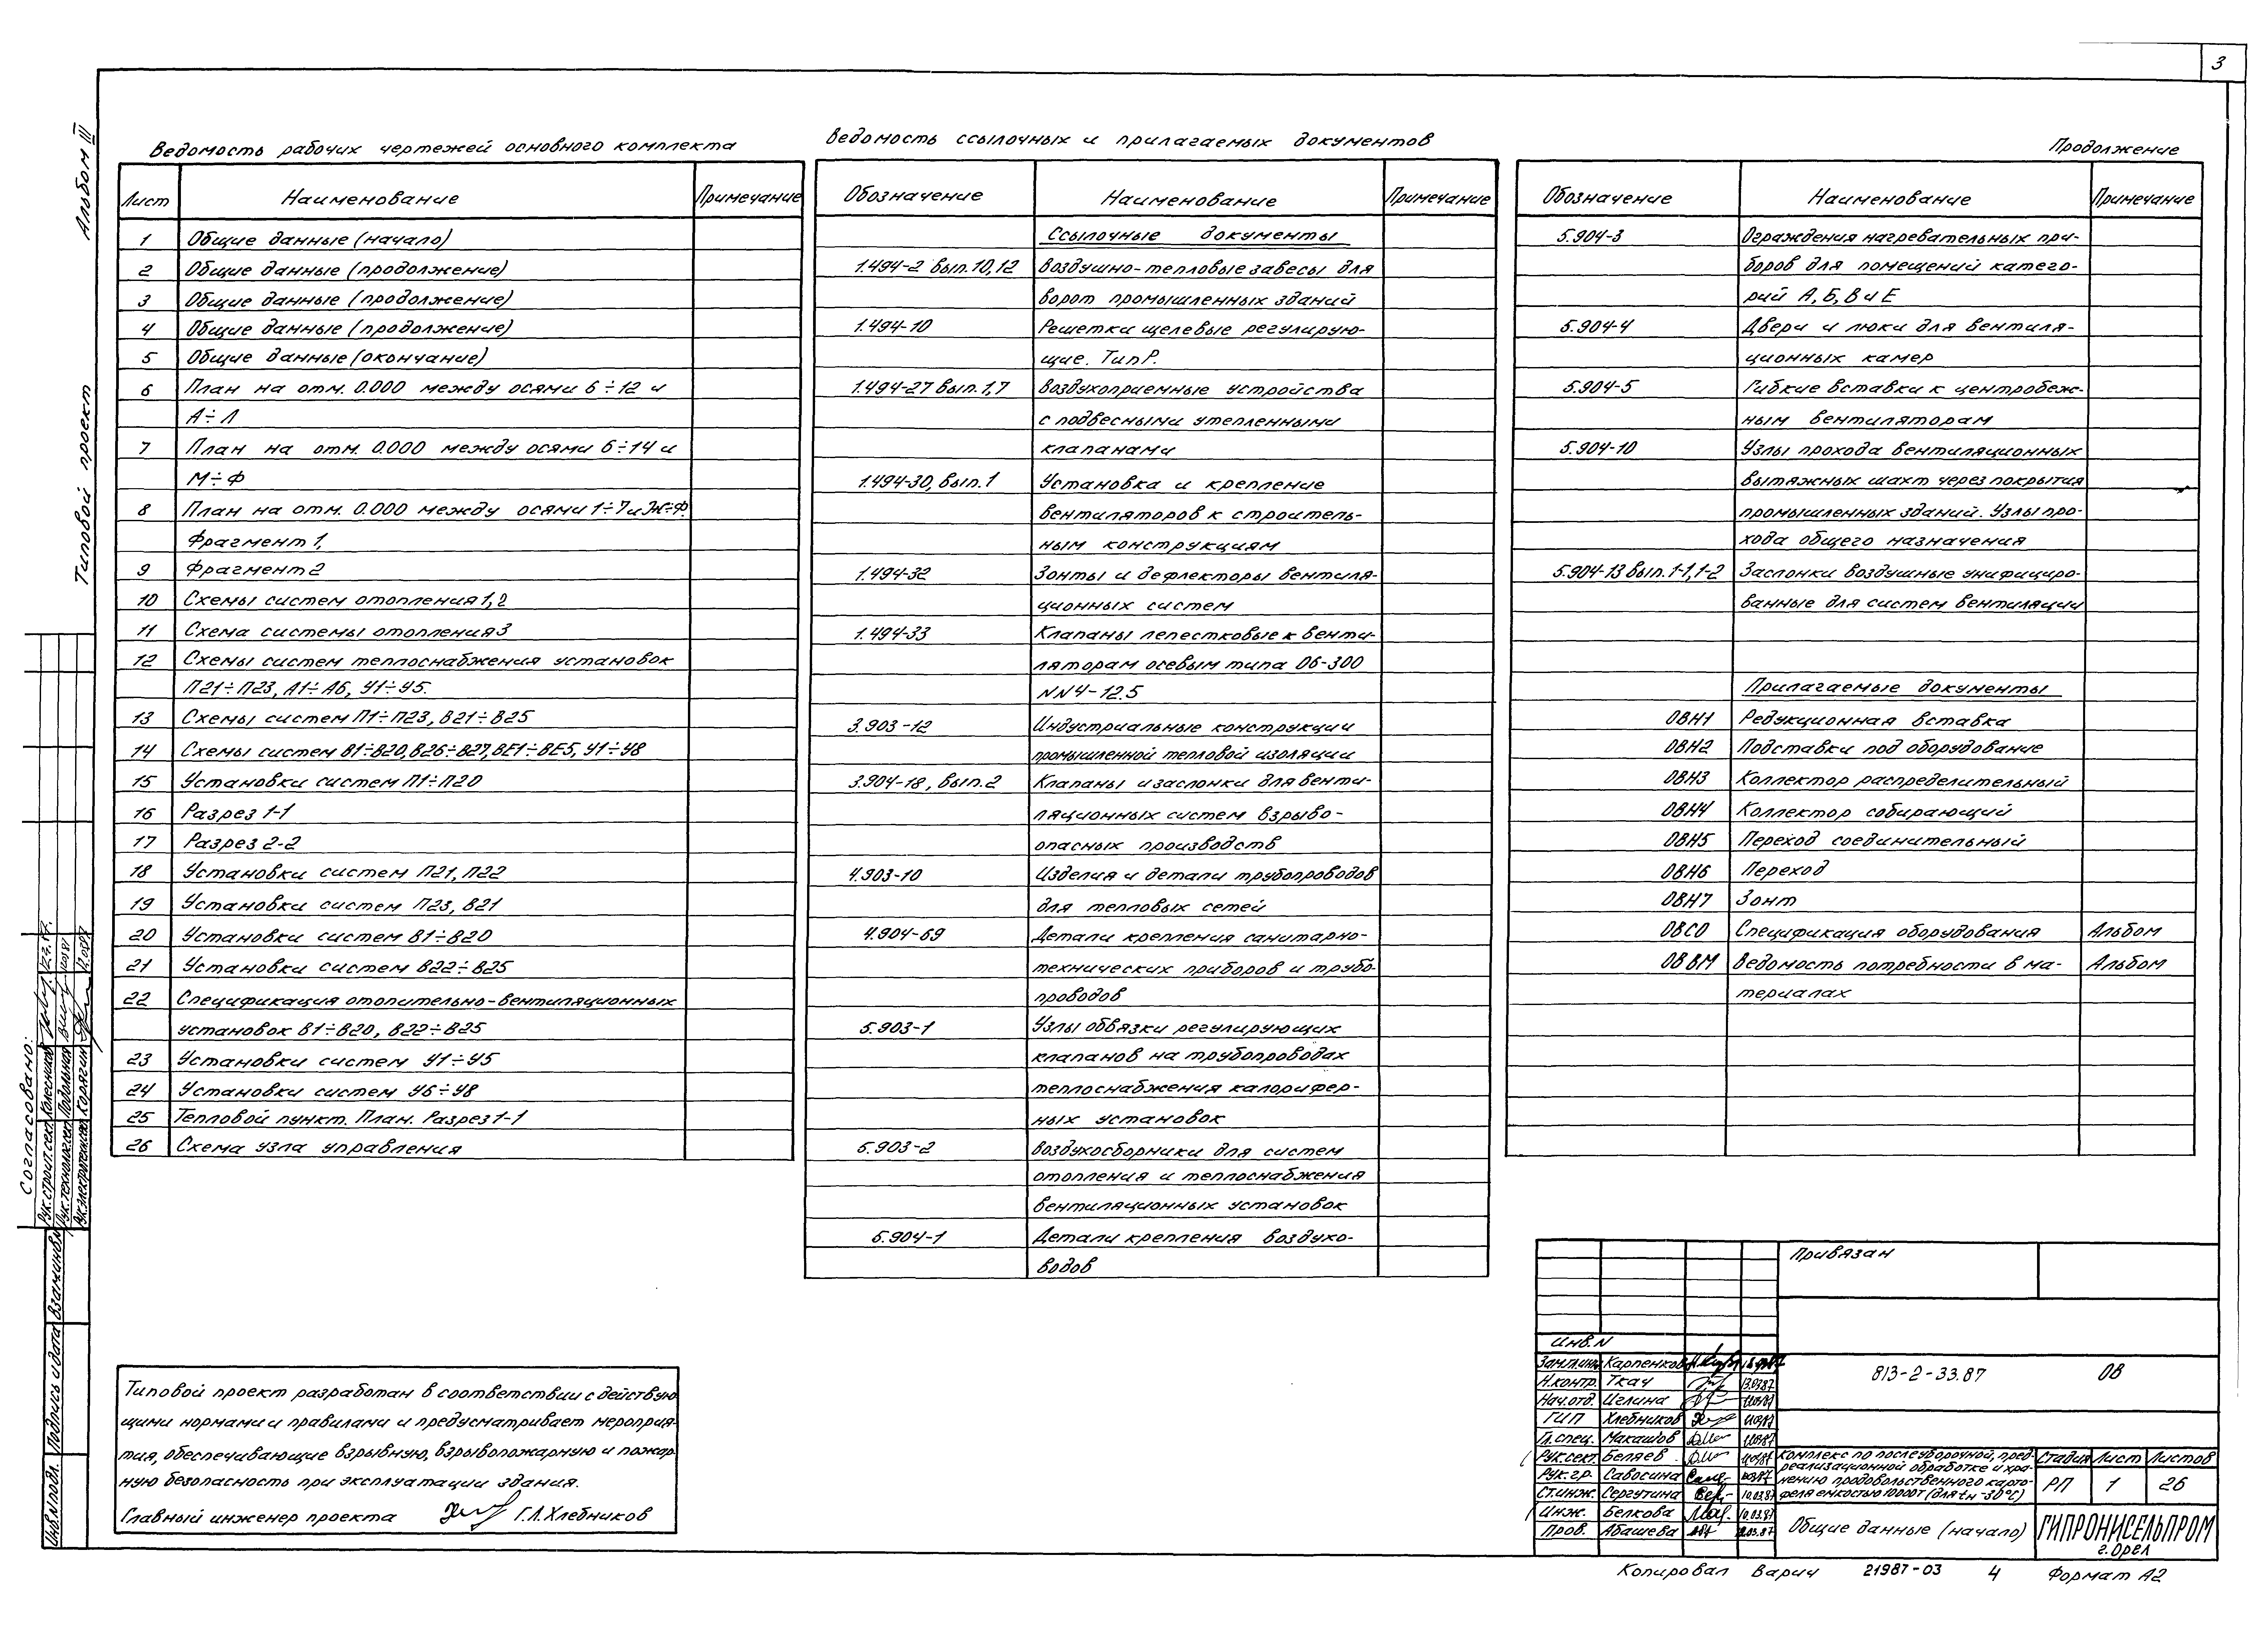 3
Альбом III
Типовой проект
Ведомость рабочих чертежей основного комплекта
Лист Наименование Примечание
1 Общие данные (начало)
2 Общие данные (продолжение)
3 Общие данные (продолжение)
4 Общие данные (продолжение)
5 Общие данные (окончание)
6 План на отм. 0.000 между осями 6÷12 и
А÷Л
7 План на отм. 0.000 между осями 6÷14 и
М÷Ф
8 План на отм. 0.000 между осями 1÷7 и Ж÷Ф.
Фрагмент 1,
9 Фрагмент 2
10 Схемы систем отопления 1, 2
11 Схема системы отопления 3
12 Схемы систем теплоснабжения установок
П21÷П23, А1÷А6, У1÷У5.
13 Схемы систем П1÷П23, В21÷В25
14 Схемы систем В1÷В20, В26÷В27, ВЕ1÷ВЕ5, У1÷У8
15 Установки систем П1÷П20
16 Разрез 1-1
17 Разрез 2-2
18 Установки систем П21, П22
19 Установки систем П23, В21
20 Установки систем В1÷В20
21 Установки систем В22÷В25
22 Спецификация отопительно-вентиляционных
установок В1÷В20, В22÷В25
23 Установки систем У1÷У5
24 Установки систем У6÷У8
25 Тепловой пункт. План. Разрез 1-1
26 Схема узла управления
Ведомость ссылочных и прилагаемых документов
Обозначение Наименование Примечание
Ссылочные документы
1.494-2 вып. 10, 12 Воздушно-тепловые завесы для
ворот промышленных зданий
1.494-10 Решетки щелевые регулирую-
щие. Тип Р.
1.494-27 вып. 1, 7 Воздухоприемные устройства
с подвесными утепленными
клапанами
1.494-30, вып. 1 Установка и крепление
вентиляторов к строитель-
ным конструкциям
1.494-32 Зонты и дефлекторы вентиля-
ционных систем
1.494-33 Клапаны лепестковые к венти-
ляторам осевым типа 06-300
NN4-12.5
3.903-12 Индустриальные конструкции
промышленной тепловой изоляции
3.904-18, вып. 2 Клапаны и заслонки для венти-
ляционных систем взрыво-
опасных производств
4.903-10 Изделия и детали трубопроводов
для тепловых сетей
4.904-69 Детали крепления санитарно-
технических приборов и трубо-
проводов
5.903-1 Узлы обвязки регулирующих
клапанов на трубопроводах
теплоснабжения калорифер-
ных установок
5.903-2 Воздухосборники для систем
отопления и теплоснабжения
вентиляционных установок
5.904-1 Детали крепления воздухо-
водов
Продолжение
Обозначение Наименование Примечание
5.904-3 Ограждения нагревательных при-
боров для помещений катего-
рий А, Б, В и Е
5.904-4 Двери и люки для вентиля-
ционных камер
5.904-5 Гибкие вставки к центробеж-
ным вентиляторам
5.904-10 Узлы прохода вентиляционных
вытяжных шахт через покрытия
промышленных зданий. Узлы про-
хода общего назначения
5.904-13 вып. 1-1, 1-2 Заслонки воздушные унифициро-
ванные для систем вентиляции
Прилагаемые документы
ОВН1 Редукционная вставка
ОВН2 Подставки под оборудование
ОВН3 Коллектор распределительный
ОВН4 Коллектор собирающий
ОВН5 Переход соединительный
ОВН6 Переход
ОВН7 Зонт
ОВСО Спецификация оборудования Альбом
ОВ ВМ Ведомость потребности в ма- Альбом
териалах
Согласовано:
Рук. строит. сект. Колесников
Рук. технолог. сект. Подольная
Рук. электротех. сект. Корягин
Взам. инв. N
Подпись и дата
Инв. N подл.
Типовой проект разработан в соответствии с действую-
щими нормами и правилами и предусматривает мероприя-
тия, обеспечивающие взрывную, взрывопожарную и пожар-
ную безопасность при эксплуатации здания.
Главный инженер проекта Г.Л. Хлебников
Привязан
Инв. N
Зам. гл. инж. Карпенков
Н. контр. Ткач 13.03.87
Нач. отд. Иглина
ГИП Хлебников
Гл. спец. Макашов
Рук. сект. Беляев
Рук. гр. Савосина
Ст. инж. Сергутина 10.03.87
Инж. Белкова 10.03.87
Пров. Абашева
813-2-33.87 ОВ
Комплекс по послеуборочной, пред-
реализационной обработке и хра-
нению продовольственного карто-
феля емкостью 10000т (для tн -30°С)
Стадия Лист Листов
РП 1 26
Общие данные (начало)
ГИПРОНИСЕЛЬПРОМ
г. Орел
Копировал Варич 21987-03 4 Формат А2